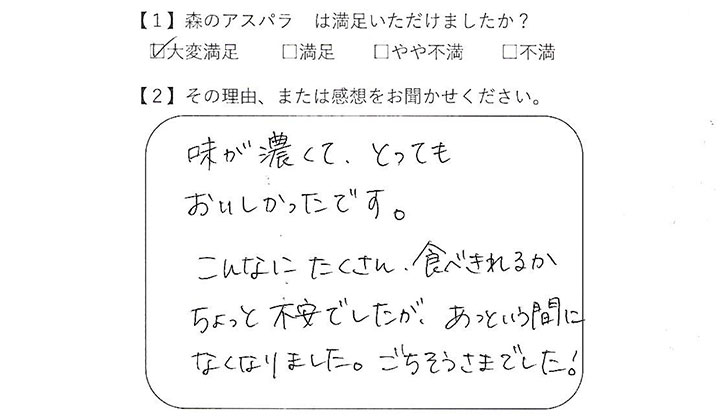 【１】森のアスパラ　は満足いただけましたか？
☑大変満足　□満足　□やや不満　□不満
【２】その理由、または感想をお聞かせください。
味が濃くて、とっても
おいしかったです。
こんなに たくさん、食べきれるか
ちょっと 不安でしたが、あっという間に
なくなりました。ごちそうさまでした！